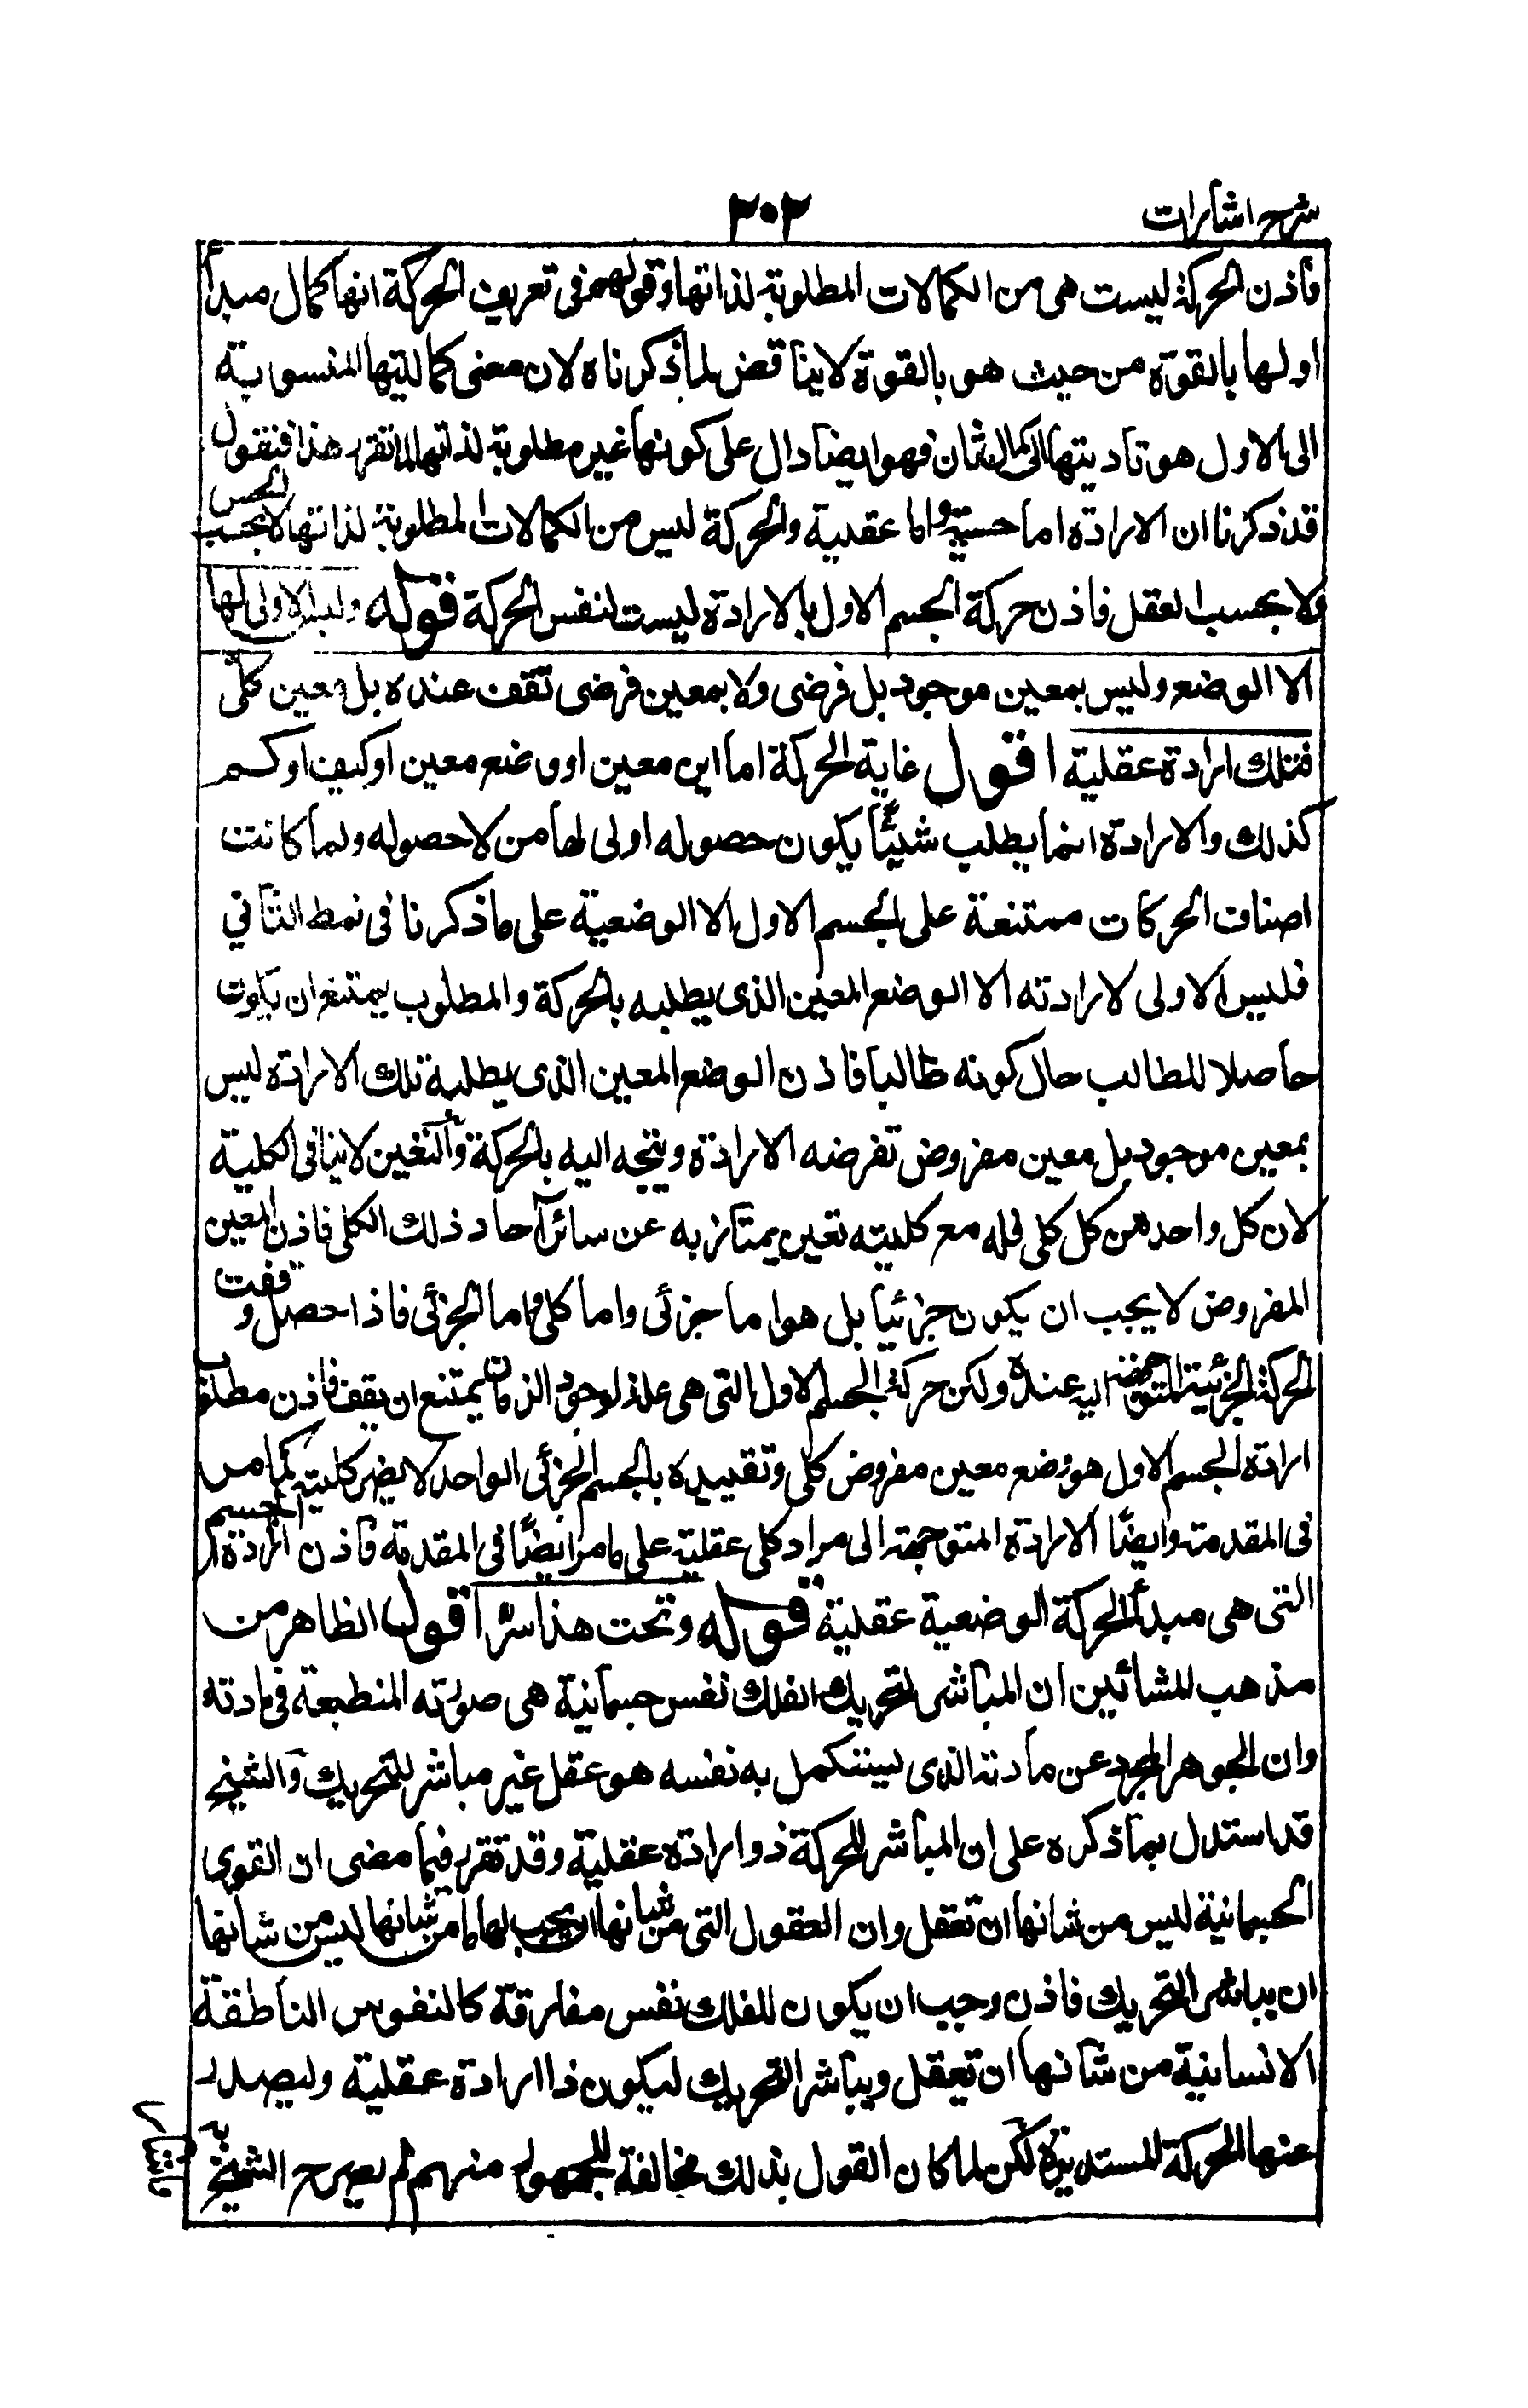 شرح اشارات
٣٠٢
فاذن الحركة ليست هى من الكمالات المطلوبة لذاتها وقولهم فى تعريف الحركة انها كمال مبدأ
اولها بالقوة من حيث هو بالقوة لا يناقض لما ذكرناه لان معنى كماليتها المنسوبة
الى الاول هو تاديتها الى كمال ثان فهو ايضا دال على كونها غير مطلوبة لذاتها لما تقرر هذا فنقول
قد ذكرنا ان الارادة اما حسية واما عقلية والحركة ليس من الكمالات المطلوبة لذاتها لا بحسب الحس
ولا بحسب العقل فاذن حركة الجسم الاول بالارادة ليست لنفس الحركة قوله وليس الاولى لها
الا الوضع وليس بمعين موجود بل فرضى ولا بمعين فرضى تقف عنده بل معين كلى
فتلك ارادة عقلية اقول غاية الحركة اما اين معين او وضع معين او كيف او كم
كذلك والارادة انما يطلب شيئا يكون حصوله اولى لها من لا حصوله ولما كانت
اصناف الحركات ممتنعة على الجسم الاول الا الوضعية على ما ذكرنا فى نمط الثانى
فليس الاولى لارادته الا الوضع المعين الذى يطلبه بالحركة والمطلوب يمتنع ان يكون
حاصلا للطالب حال كونه طالبا فاذن الوضع المعين الذى يطلبه تلك الارادة ليس
بمعين موجود بل معين مفروض تفرضه الارادة ويتجه اليه بالحركة والتعين لا ينافى الكلية
لان كل واحد من كل كلى فله مع كليته تعين يمتاز به عن سائر آحاد ذلك الكلى فاذن المعين
المفروض لا يجب ان يكون جزئيا بل هو اما جزئى واما كلى واما الجزئى فاذا حصل وقفت
الحركة الجزئية المتوجهة اليه عنده ولكن حركة الجسم الاول التى هى علة لوجود الزمان يمتنع ان يقف فاذن مطلوب
ارادة الجسم الاول هو وضع معين مفروض كلى وتقييده بالجسم الجزئى الواحد لا يضر كليته كما مر
فى المقدمة وايضا الارادة المتوجهة الى مراد كلى عقلية على ما مر ايضا فى المقدمة فاذن ارادة الجسم
التى هى مبدأ الحركة الوضعية عقلية قوله وتحت هذا سر اقول الظاهر من
مذهب المشائين ان المباشر لتحريك الفلك نفس جسمانية هى صورته المنطبعة فى مادته
وان الجوهر المجرد عن مادته الذى يستكمل به نفسه هو عقل غير مباشر للتحريك والشيخ
قد استدل بما ذكره على ان المباشر للحركة ذو ارادة عقلية وقد تقرر فيما مضى ان القوى
الجسمانية ليس من شانها ان تعقل وان العقول التى من شانها ان يجب لها ما من شانها ليس من شانها
ان يباشر التحريك فاذن وجب ان يكون للفلك نفس مفارقة كالنفوس الناطقة
الانسانية من شانها ان تعقل ويباشر التحريك ليكون ذا ارادة عقلية وليصدر
عنها الحركة المستديرة لكن لما كان القول بذلك مخالفة للجمهور منهم لم يصرح الشيخ به